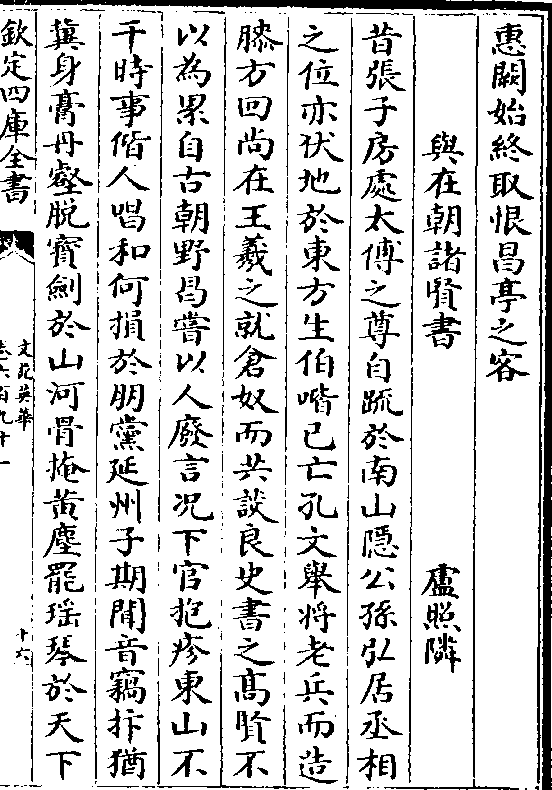 惠闕始終取恨昌亭之客
與在朝諸賢書 盧照隣
昔張子房處太傅之尊自疏於南山隱公孫弘居丞相
之位亦伏地於東方生伯喈已亡孔文舉将老兵而造
膝方回尚在王羲之就倉奴而共談良史書之髙賢不
以為累自古朝野曷嘗以人廢言况下官抱疹東山不
干時事偕人唱和何損於朋黨延州子期聞音竊抃猶
冀身膏丹壑脱寳劎於山河骨掩黄塵罷瑶琴於天下
欽定四庫全書
文苑英華
卷六百九十一
十六